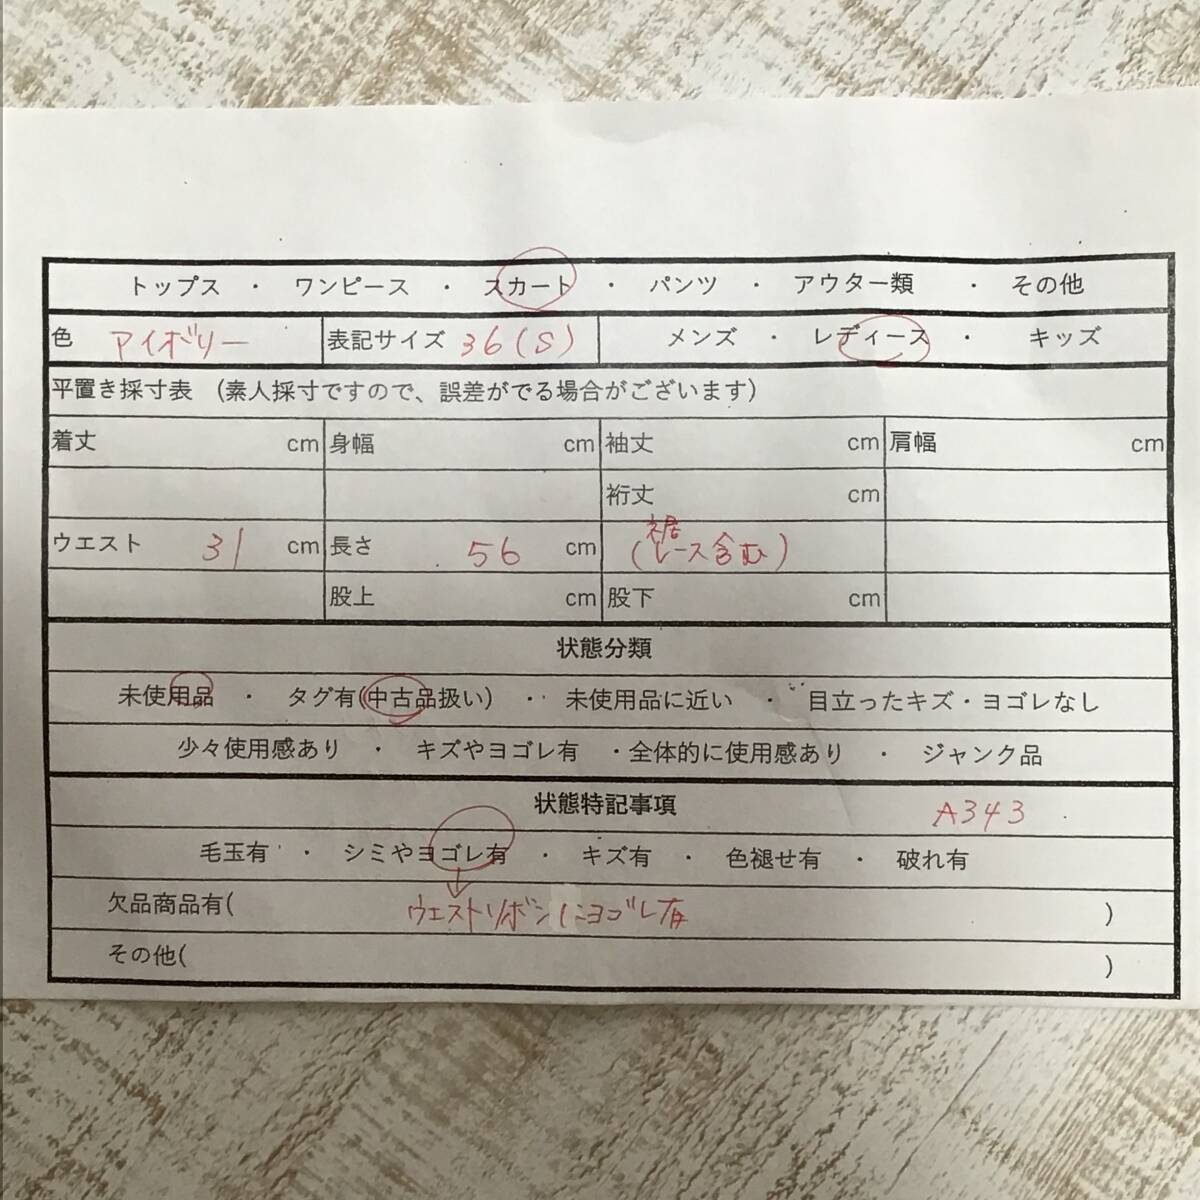 トップス ・ ワンピース ・ スカート ・ パンツ ・ アウター類 ・ その他
色 アイボリー 表記サイズ 36(S) メンズ ・ レディース ・ キッズ
平置き採寸表 (素人採寸ですので、誤差がでる場合がございます)
着丈 cm 身幅 cm 袖丈 cm 肩幅 cm
裄丈 cm
ウエスト 31 cm 長さ 56 cm (裾レース含む)
股上 cm 股下 cm
状態分類
未使用品 ・ タグ有(中古品扱い) ・ 未使用品に近い ・ 目立ったキズ・ヨゴレなし
少々使用感あり ・ キズやヨゴレ有 ・全体的に使用感あり ・ ジャンク品
状態特記事項 A343
毛玉有 ・ シミやヨゴレ有 ・ キズ有 ・ 色褪せ有 ・ 破れ有
欠品商品有( ウエストリボンにヨゴレ有 )
その他( )